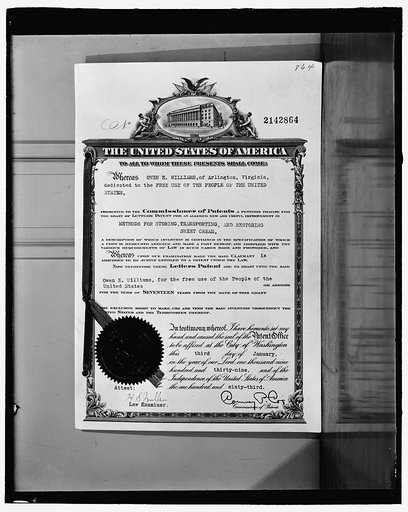 964
2142864
THE UNITED STATES OF AMERICA
TO ALL TO WHOM THESE PRESENTS SHALL COME:
Whereas OWEN E. WILLIAMS, of Arlington, Virginia,
dedicated to the FREE USE OF THE PEOPLE OF THE UNITED
STATES,
PRESENTED TO THE Commissioner of Patents A PETITION PRAYING FOR
THE GRANT OF LETTERS PATENT FOR AN ALLEGED NEW AND USEFUL IMPROVEMENT IN
METHODS FOR STORING, TRANSPORTING, AND RESTORING
SWEET CREAM,
A DESCRIPTION OF WHICH INVENTION IS CONTAINED IN THE SPECIFICATION OF WHICH
A COPY IS HEREUNTO ANNEXED AND MADE A PART HEREOF, AND COMPLIED WITH THE
VARIOUS REQUIREMENTS OF LAW IN SUCH CASES MADE AND PROVIDED, AND
Whereas UPON DUE EXAMINATION MADE THE SAID CLAIMANT IS
ADJUDGED TO BE JUSTLY ENTITLED TO A PATENT UNDER THE LAW.
NOW THEREFORE THESE Letters Patent ARE TO GRANT UNTO THE SAID
Owen E. Williams, for the free use of the People of the
United States OR ASSIGNS
FOR THE TERM OF SEVENTEEN YEARS FROM THE DATE OF THIS GRANT
THE EXCLUSIVE RIGHT TO MAKE, USE AND VEND THE SAID INVENTION THROUGHOUT THE
UNITED STATES AND THE TERRITORIES THEREOF.
In testimony whereof, I have hereunto set my
hand and caused the seal of the Patent Office
to be affixed at the City of Washington
this third day of January,
in the year of our Lord one thousand nine
hundred and thirty-nine, and of the
Independence of the United States of America
the one hundred and sixty-third.
Attest:
Law Examiner.
Commissioner of Patents.